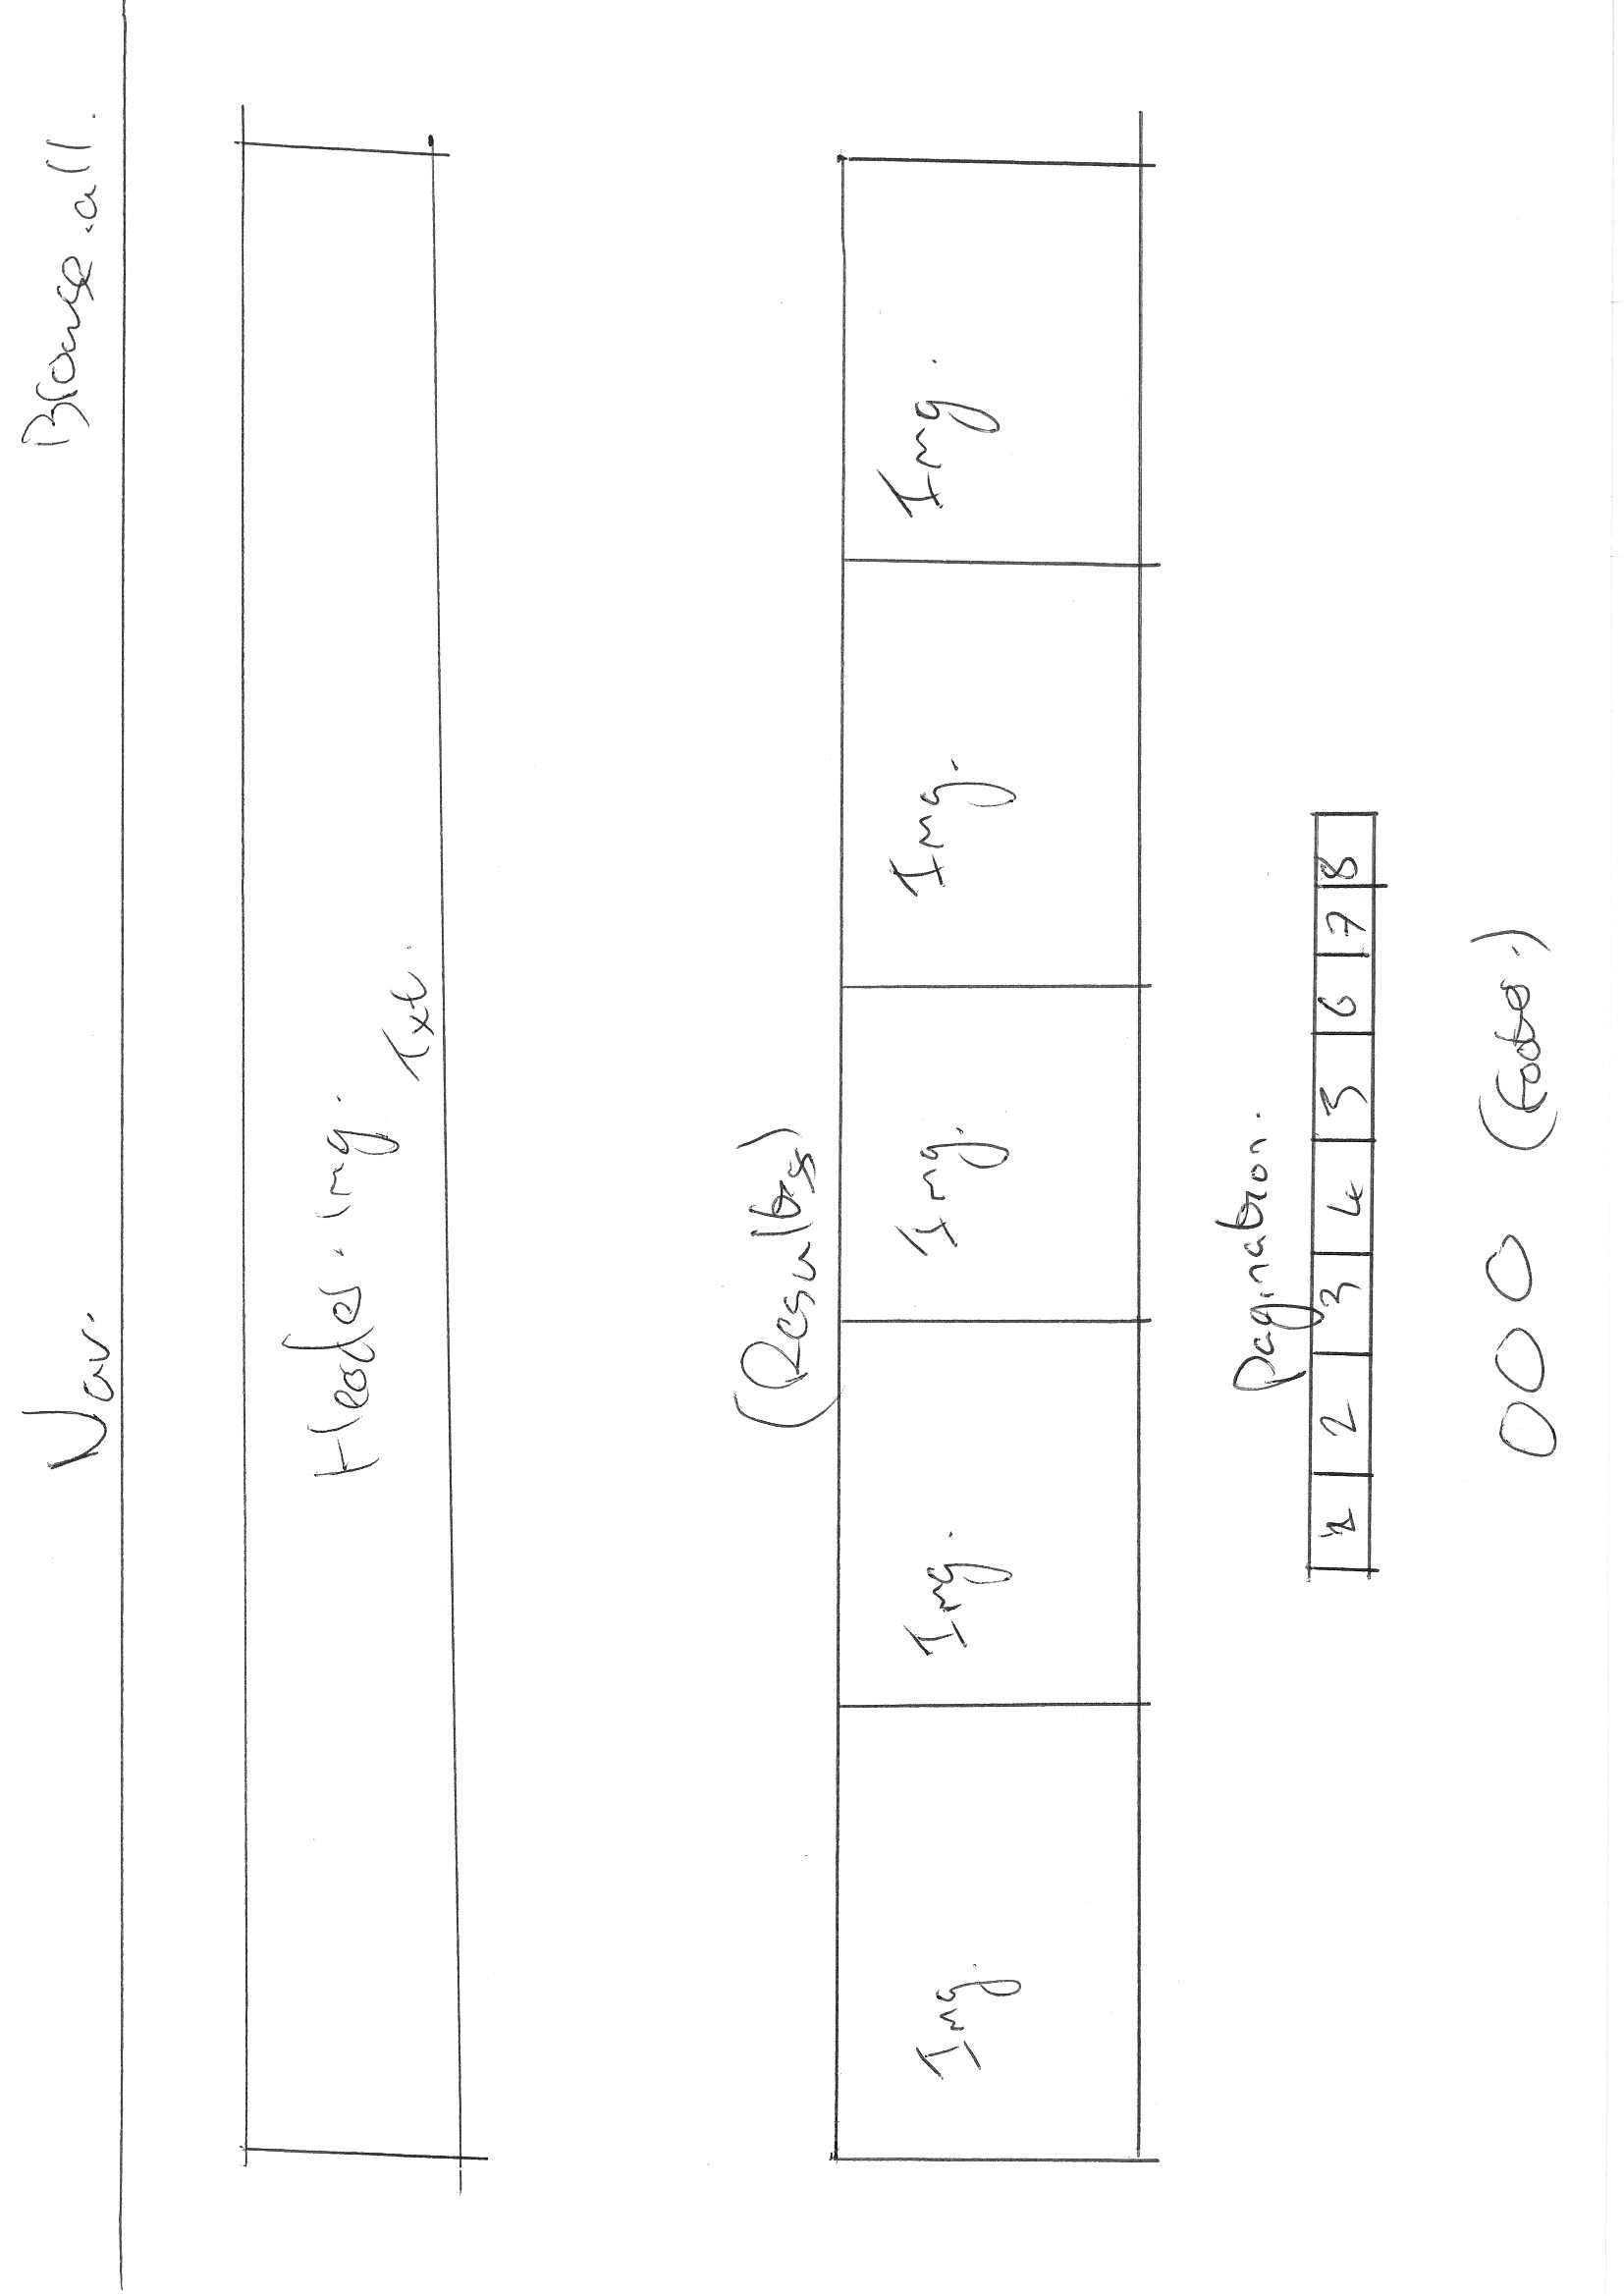 Nav. Browse all.
Header img.
Txt.
(Results)
Img. Img. Img. Img. Img.
Pagination.
1 2 3 4 5 6 7 8
(Footer.)